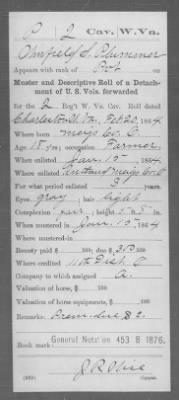 P 2 Cav. W.Va.
S. Plummer
Appears with rank of Pvt on
Muster and Descriptive Roll of a Detach-
ment of U. S. Vols. forwarded
for the 2 Reg't W. Va. Cav. Roll dated
Charleston W. Va. Feb 20, 1864.
Where born Meigs Co. O.
Age 18 y'rs; occupation Farmer
When enlisted Jan. 15, 1864.
Where enlisted Meigs Co. O
For what period enlisted 3 years.
Eyes gray; hair light
Complexion fair; height 5 ft. 5 in.
When mustered in Jan. 19, 1864
Where mustered in
Bounty paid $ 100; due $ 100
Where credited 11th Dist. O
Company to which assigned A.
Valuation of horse, $ 100
Valuation of horse equipments, $ 100
Remarks: Prem. due $2.
Book mark: General Notation 453 B 1876.
(339) Copyist.